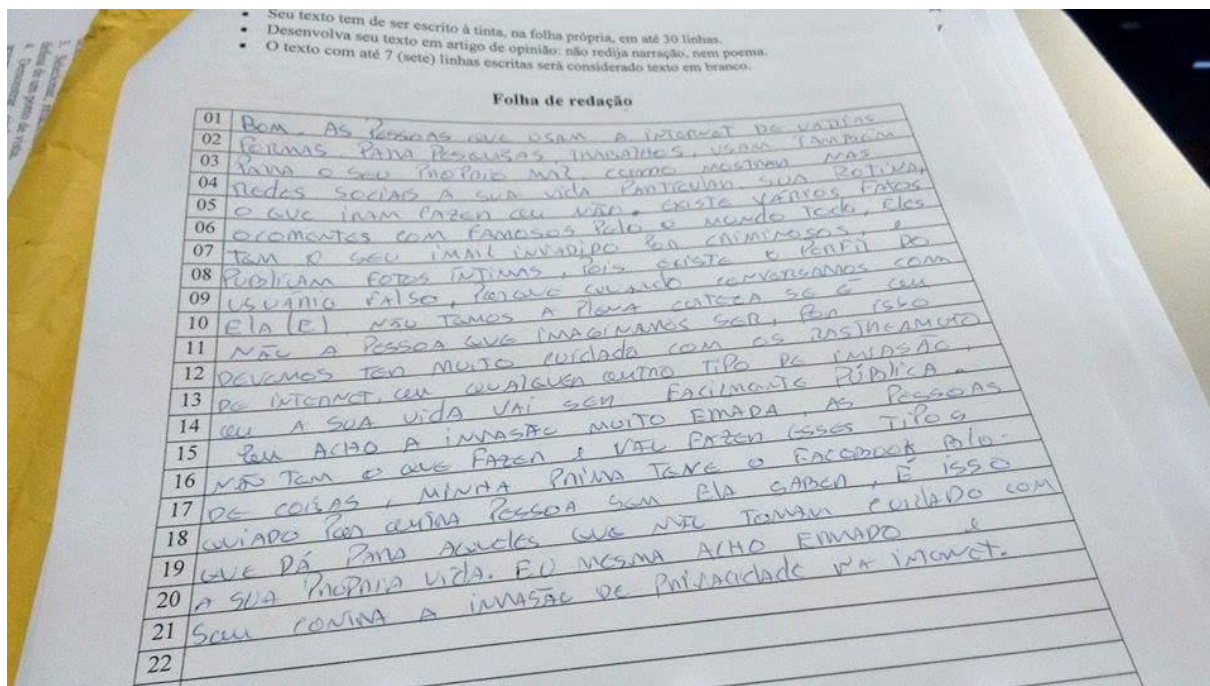 Seu texto tem de ser escrito à tinta, na folha própria, em até 30 linhas.
Desenvolva seu texto em artigo de opinião: não redija narração, nem poema.
O texto com até 7 (sete) linhas escritas será considerado texto em branco.
Folha de redação
01 Bom, As Pessoas que usam a internet de varias
02 formas. Para Pesquisas, trabalhos, usam também
03 Para o seu Proprio mal, como mostram nas
04 redes sociais a sua vida Particular, sua rotina,
05 o que iram fazer ou não. existe varios fatos
06 ocorrentes com famosos Pelo o mundo todo, eles
07 tem o seu imail invadido Por criminosos, e
08 Publicam fotos íntimas, Pois existe o Perfil do
09 usuário falso, Porque quando conversamos com
10 Ela (E) não temos a Plena certeza se é ou
11 não a Pessoa que imaginamos ser, Por isso
12 devemos ter muito cuidado com os rastreamento
13 de internet, ou qualquer outro tipo de invasão,
14 ou a sua vida vai ser facilmente Pública.
15 Eu acho a invasão muito errada, as Pessoas
16 não tem o que fazer e vão fazer esses tipos
17 de coisas, minha Prima teve o facebook blo-
18 quiado Por outra Pessoa sem ela saber, É isso
19 que dá Para aqueles que não tomam cuidado com
20 a sua Propria vida. Eu mesma acho errado e
21 Sou contra a invasão de Privacidade na internet.
22